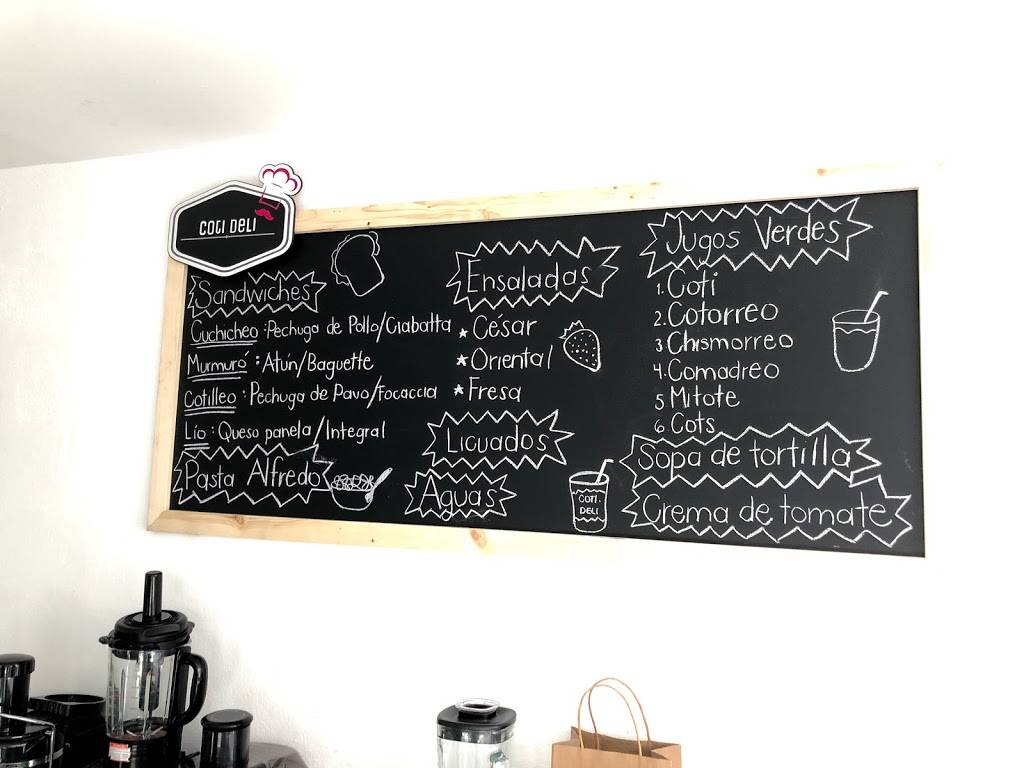 COTI DELI
Sandwiches
Cuchicheo : Pechuga de Pollo/Ciabatta
Murmuró : Atún/Baguette
Cotilleo : Pechuga de Pavo/Focaccia
Lío : Queso panela/Integral
Pasta Alfredo
Ensaladas
★ César
★ Oriental
★ Fresa
Licuados
Aguas
COTI.
DELI
Jugos Verdes
1. Coti
2. Cotorreo
3 Chismorreo
4. Comadreo
5 Mitote
6 Cots
Sopa de tortilla
Crema de tomate